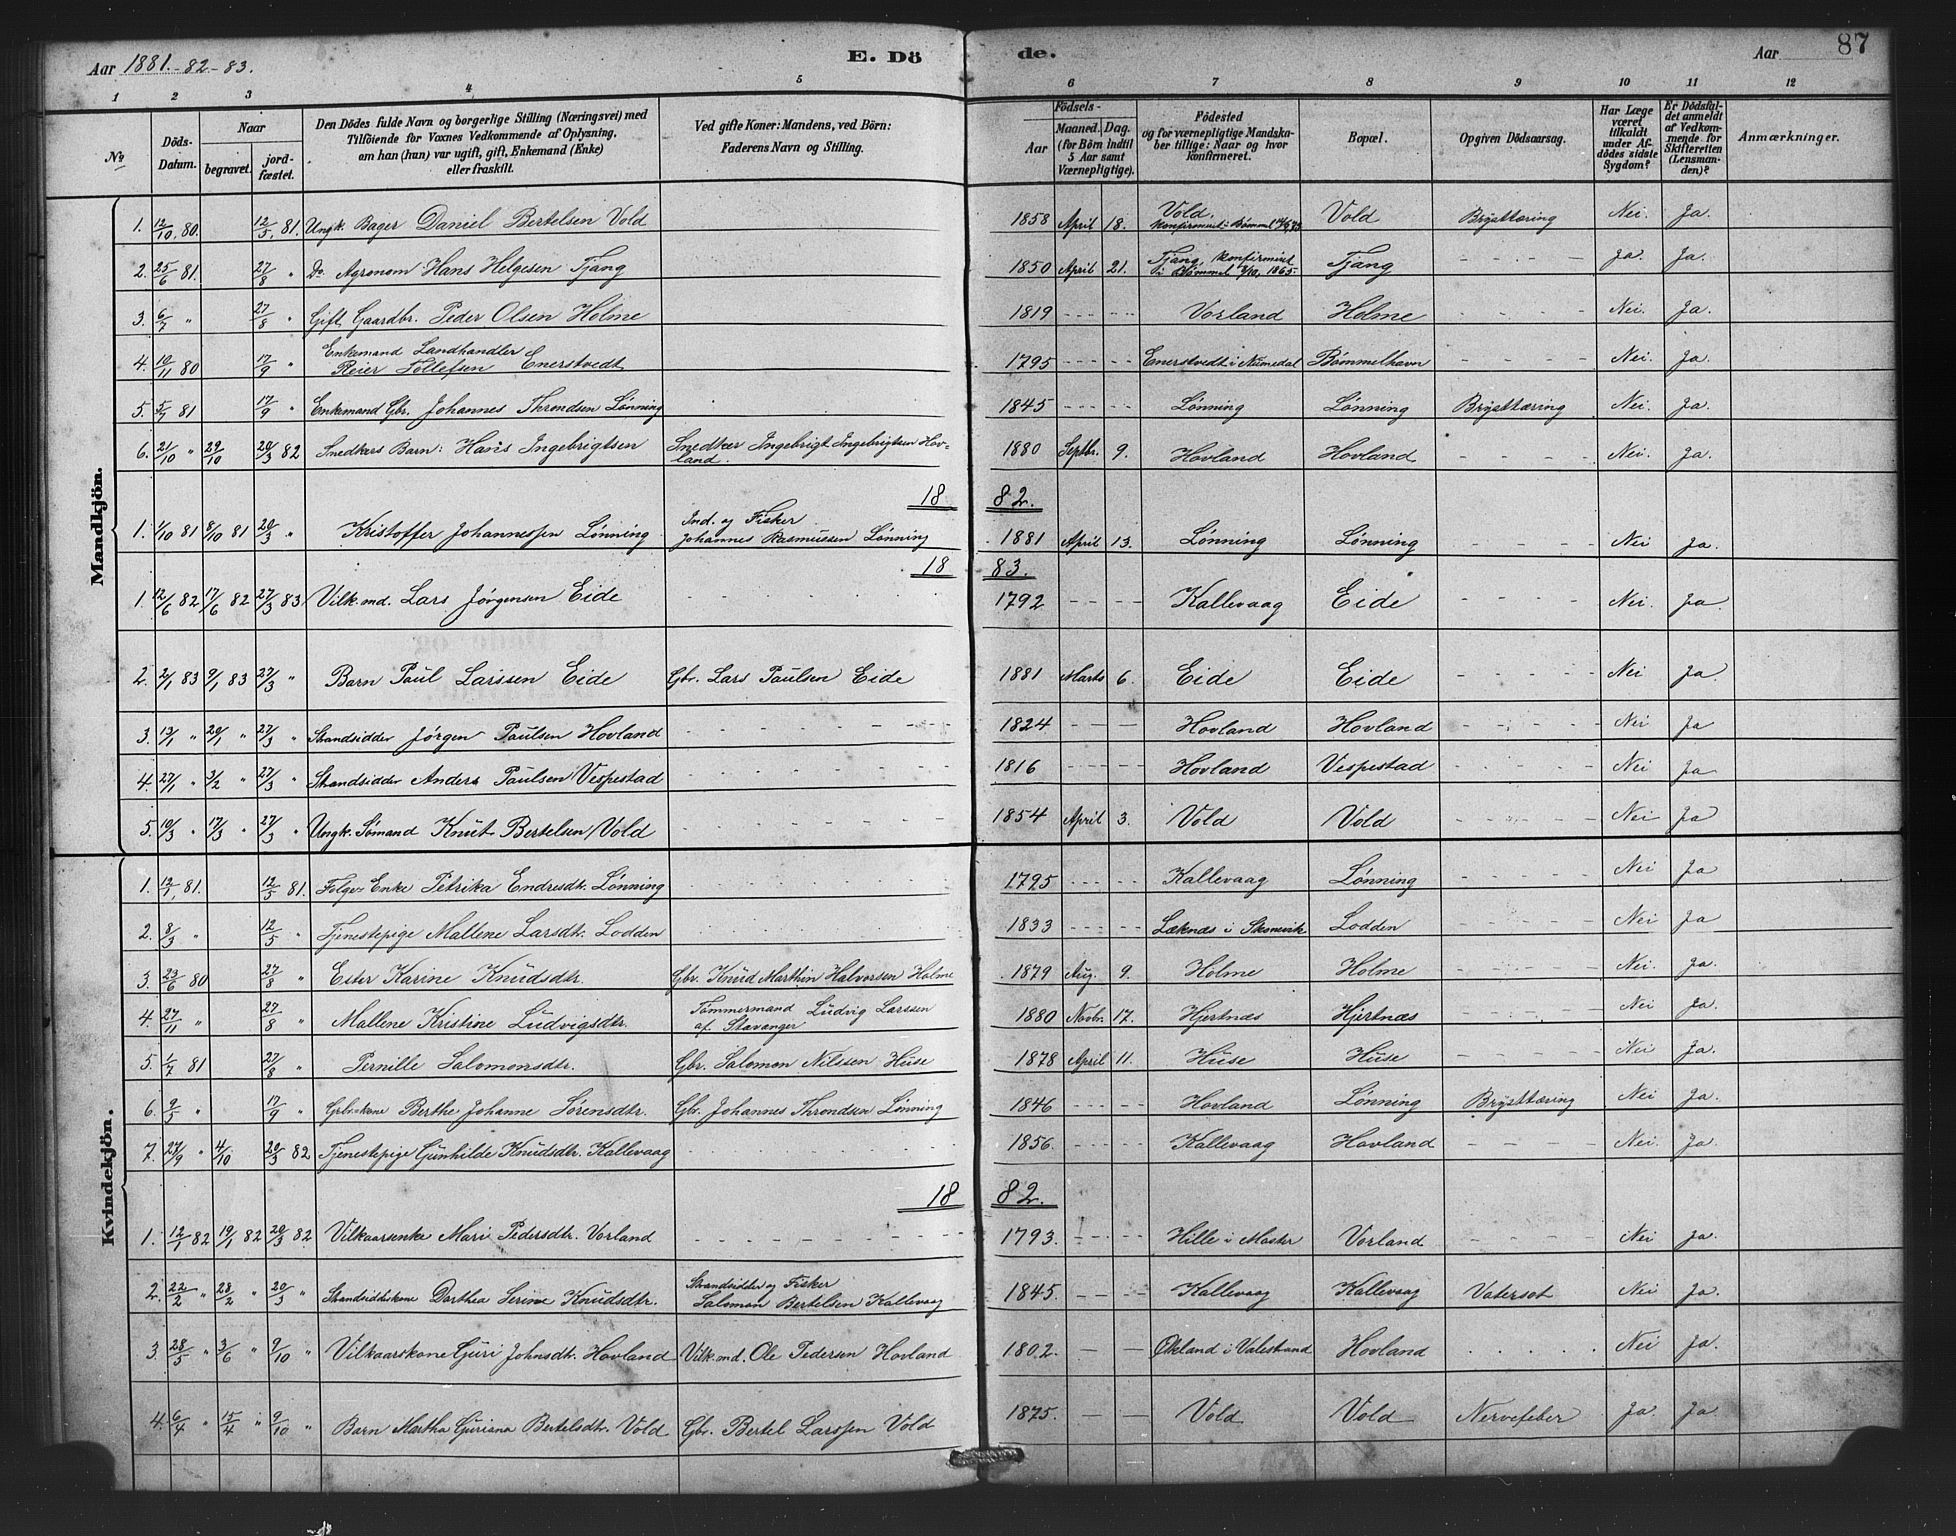 Aar 1881.-82-83. E. Dö de. Aar 87
1 2 3 4 5 6 7 8 9 10 11 12
No Döds-Datum. Naar begravet. jordfæstet. Den Dödes fulde Navn og borgerlige Stilling (Næringsvei) med Tilföiende for Voxnes Vedkommende af Oplysning, om han (hun) var ugift, gift, Enkemand (Enke) eller fraskilt. Ved gifte Koner: Mandens, ved Börn: Faderens Navn og Stilling. Födsels- Aar Maaned. Dag. (for Börn indtil 5 Aar samt Værnepligtige). Födested og for værnepligtige Mandskaber tillige: Naar og hvor konfirmeret. Bopæl. Opgiven Dödsaarsag. Har Læge været tilkaldt under Afdödes sidste Sygdom? Er Dödsfaldet anmeldt af Vedkommende for Skifteretten (Lensmanden)? Anmærkninger.
Mandkjön.
1. 12/10 80. 12/5 81. Ungk. Bager Daniel Bertelsen Vold 1858 April 18. Vold, konfirmeret i Bømmel Vold Brysttæring Nei Ja.
2. 25/6 81. 27/8 " Do. Agronom Hans Helgesen Tjang 1850 April 21. Tjang, konfirmeret i Bømmel 1/10 1865. Tjang - - - - ja. Ja.
3. 6/7 " 27/8 " Gift Gaardbr. Peder Olsen Holme 1819 - - - - Vorland Holme Nei. Ja.
4. 19/11 80 17/9 " Enkemand Landhandler Reier Tollefsen Enerstvedt 1795 - - - - Enerstvedt i Numedal Bømmelhavn - - - - Nei. Ja
5. 5/7 81 17/9 " Enkemand Gbr. Johannes Throndsen Lønning 1845 - - - - Lønning Lønning Brysttæring Nei. Ja.
6. 21/10 " 29/10 20/3 82 Snedkers Barn: Hans Ingebrigtsen Snedker Ingebrigt Ingebrigtsen Hovland. 1880 Septbr. 9. Hovland Hovland - - - - Nei. Ja.
18 82.
1. 1/10 81 8/10 81 20/3 " Kristoffer Johannessen Lønning Ind. og Fisker Johannes Rasmussen Lønning 1881 April 13. Lønning Lønning - - - - Nei Ja.
18 83.
1. 12/6 82 17/6 82 27/3 83 Vilk.md. Lars Jørgensen Eide 1792 - - - - Kallevaag Eide - - - - Nei. Ja
2. 2/1 83 9/1 83 27/3 " Barn Paul Larssen Eide Gbr. Lars Paulsen Eide 1881 Marts 6. Eide Eide - - - - Nei Ja.
3. 13/1 " 20/1 " 27/3 " Strandsidder Jørgen Paulsen Hovland - - - - 1824 - - - Hovland Hovland - - - - Nei Ja
4. 27/1 " 3/2 " 27/3 " Strandsidder Anders Paulsen Vespestad - - - - 1816 - - - Hovland Vespestad - - - - Nei Ja
5. 10/3 " 17/3 " 27/3 " Ungk. Sømand Knut Bertelsen Vold - - - - 1854 April 3. Vold Vold - - - - Nei Ja
Kvindekjön.
1. 12/1 81. 12/5 81. Enke Petrika Endresdtr. Lønning - - - - 1795 - - - - Kallevaag Lønning Nei Ja
2. 8/3 " 12/5 " Tjenestepige Mallene Larsdtr. Lodden 1833 - - - - Læknæs i Skonevik Lodden - - - - Nei Ja
3. 23/6 80 27/8 " Ester Karine Knudsdtr. Gbr. Knud Marthin Halvorsen Holme 1879 Aug. 9. Holme Holme - - - - Nei. Ja.
4. 27/11 " 27/8 " Mallene Kristine Ludvigsdtr. Tømmermand Ludvig Larssen af Stavanger 1880 Novbr. 17. Hjertnæs Hjertnæs - - - - Nei Ja.
5. 1/7 81 27/8 " Pernille Salomonsdtr. Gbr. Salomon Nilssen Huse 1878 April 11. Huse Huse - - - - Nei Ja.
6. 9/5 " 17/9 " Grbr.kone Berthe Johanne Sørensdtr. Gbr. Johannes Throndsen Lønning 1846 - - - - Hovland Lønning Brysttæring Nei. Ja.
7. 27/9 " 4/10 20/3 82 Tjenestepige Gunhilde Knudsdtr. Kallevaag - - - - 1856. - - - - Kallevaag Hovland - - - - Nei. Ja.
18 82.
1. 12/1 82 19/1 82 20/3 82 Vilkaarsenke Mari Pedersdtr. Vorland - - - - 1793. - - - - Hille i Moster Vorland Nei Ja.
2. 22/2 " 28/2 " 20/3 " Strandsidderkone Dorthea Serine Knudsdtr. Strandsidder og Fisker Salomon Bertelsen Kallevaag 1845. - - - - Kallevaag Kallevaag Vatersot Nei Ja.
3. 28/5 " 3/6 " 9/10 " Vilkaarskone Guri Johnsdtr. Hovland Vilk.md. Ole Pedersen Hovland 1802. - - Økland i Valestrand Hovland . . . . Nei Ja.
4. 6/4 " 15/4 " 9/10 " Barn Martha Guriana Bertelsdtr. Vold Gbr. Bertel Larssen Vold 1875. - - Vold Vold Nervefeber Ja. Ja